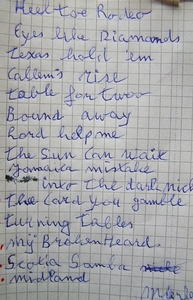 Heel toe Rodeo
Eyes like Diamonds
Texas hold 'em
Callem's rise
table for twoo
Bound away
Lord help me
the Sun Can Wait
Jamaica mistake
into the dark nich
the Card you gamble
turning tables
my Broken Heard
Scotia Samba
midland